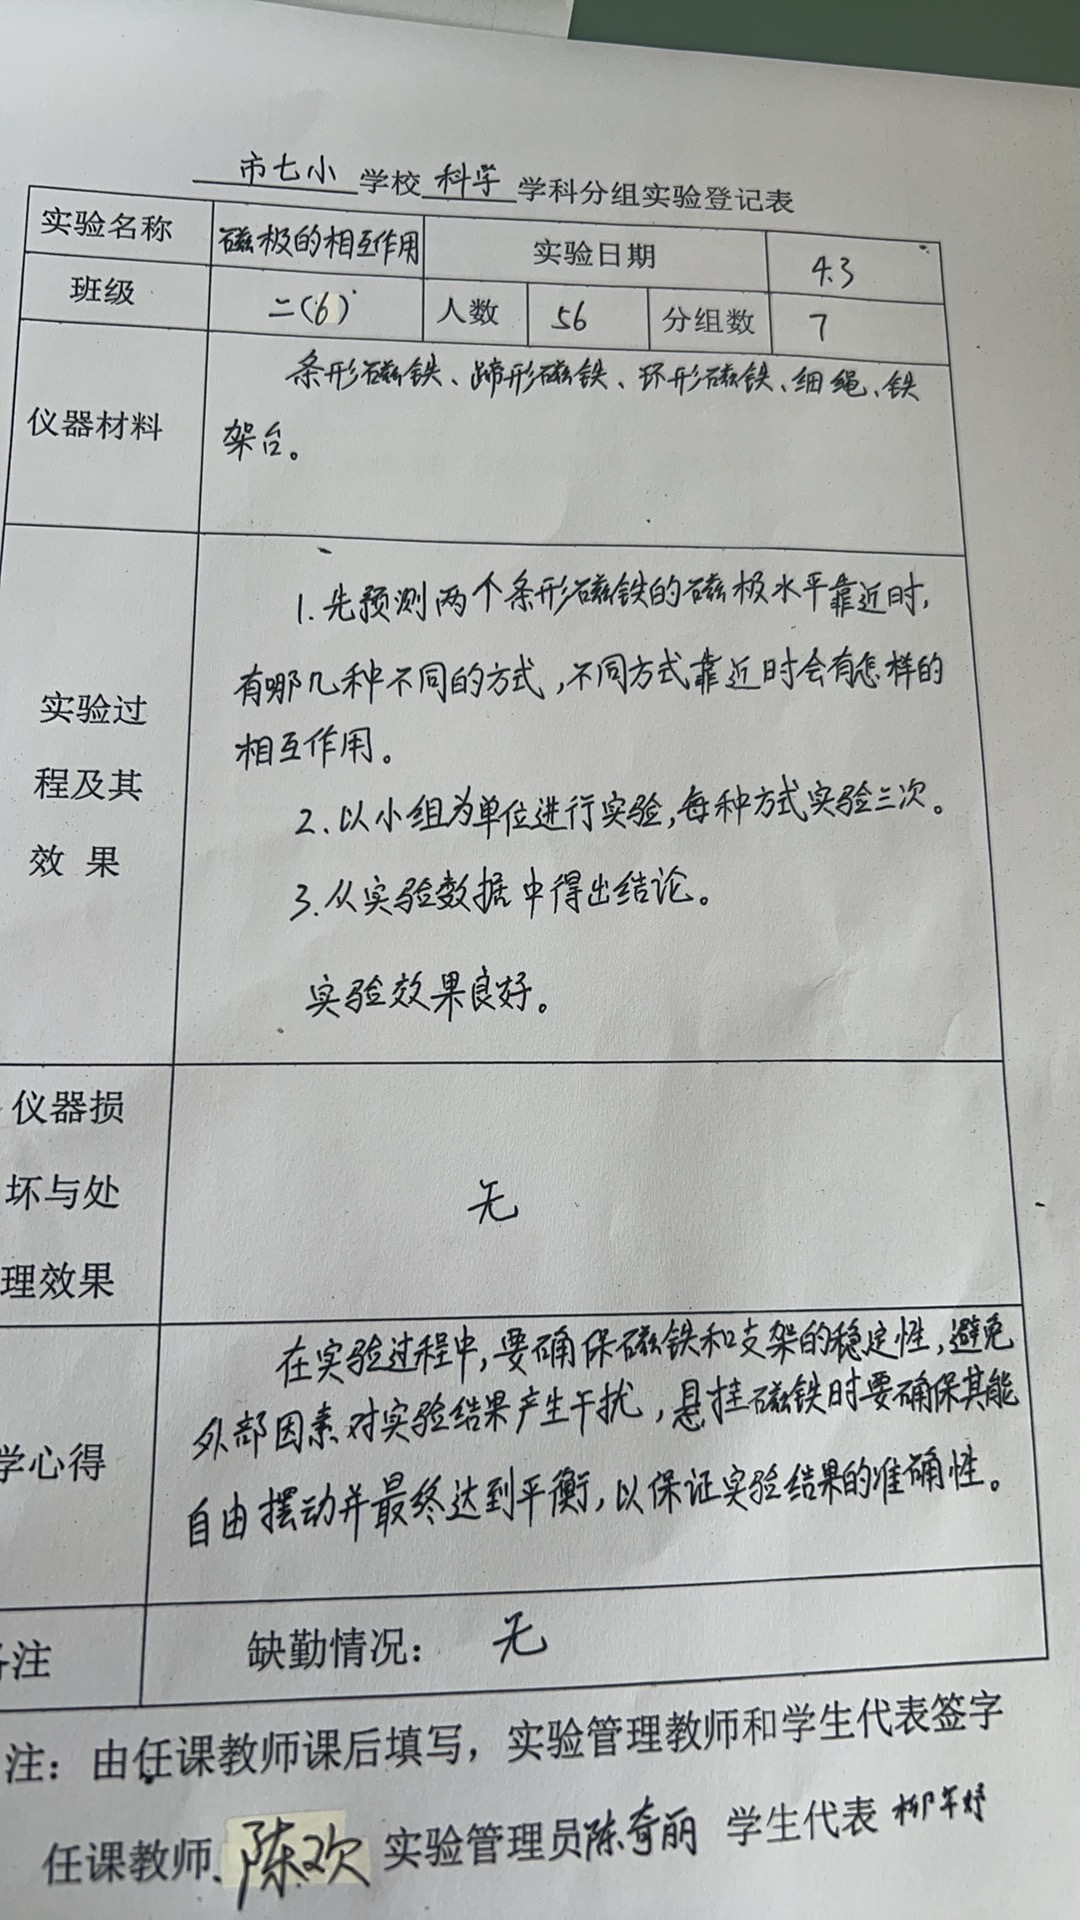 市七小 学校 科学 学科分组实验登记表
实验名称 磁极的相互作用 实验日期 4.3
班级 二(6) 人数 56 分组数 7
仪器材料
条形磁铁、蹄形磁铁、环形磁铁、细绳、铁
架台。
实验过
程及其
效 果
1.先预测两个条形磁铁的磁极水平靠近时,
有哪几种不同的方式,不同方式靠近时会有怎样的
相互作用。
2.以小组为单位进行实验,每种方式实验三次。
3.从实验数据中得出结论。
实验效果良好。
仪器损
坏与处
理效果
无
学心得
在实验过程中,要确保磁铁和支架的稳定性,避免
外部因素对实验结果产生干扰,悬挂磁铁时要确保其能
自由摆动并最终达到平衡,以保证实验结果的准确性。
备注 缺勤情况: 无
注:由任课教师课后填写,实验管理教师和学生代表签字
任课教师 陈欢 实验管理员 陈奇丽 学生代表